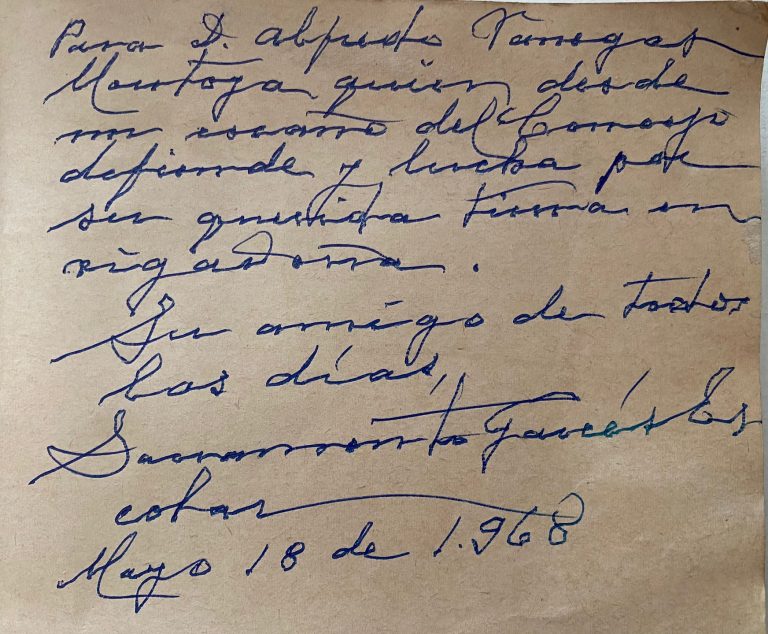 Para D. Alfredo Vanegas
Montoya, quien desde
un escaño del Concejo
defiende y lucha por
su querida tierra en
rigadoña.
Su amigo de todos
los días,
Sacramento Garcés Es
cobar
Mayo 18 de 1.968